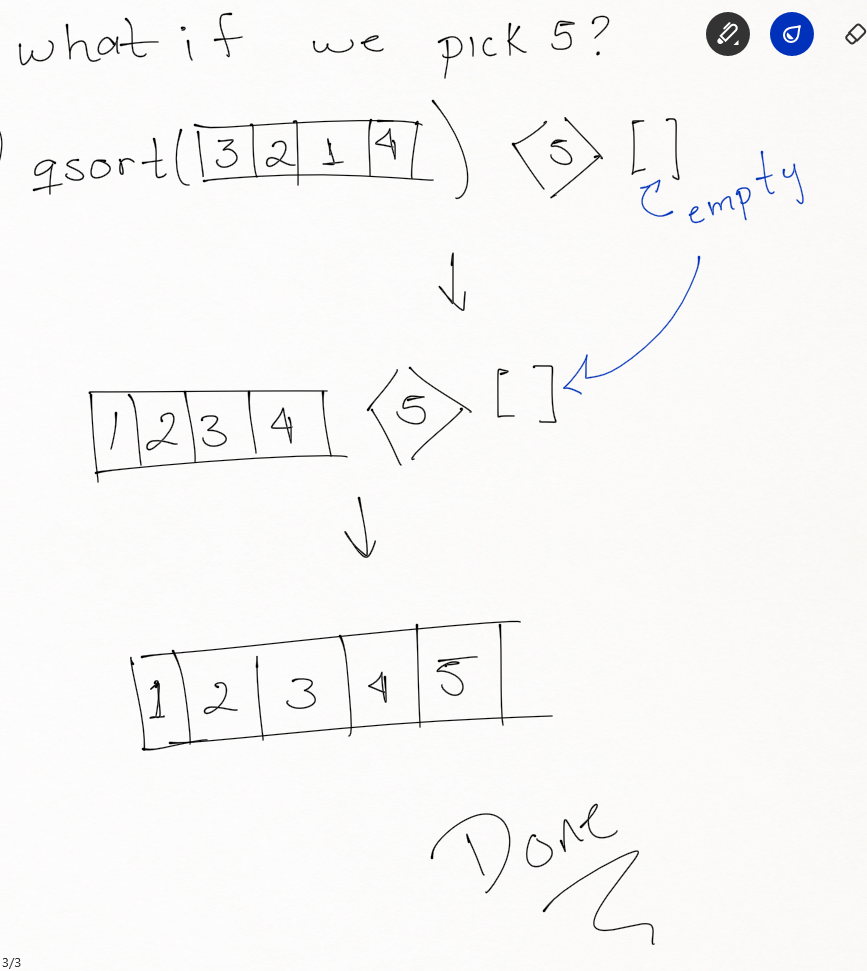 what if we pick 5?
) qsort( 3 2 1 4 ) 5 [ ]
empty
1 2 3 4 5 [ ]
1 2 3 4 5
Done
3/3